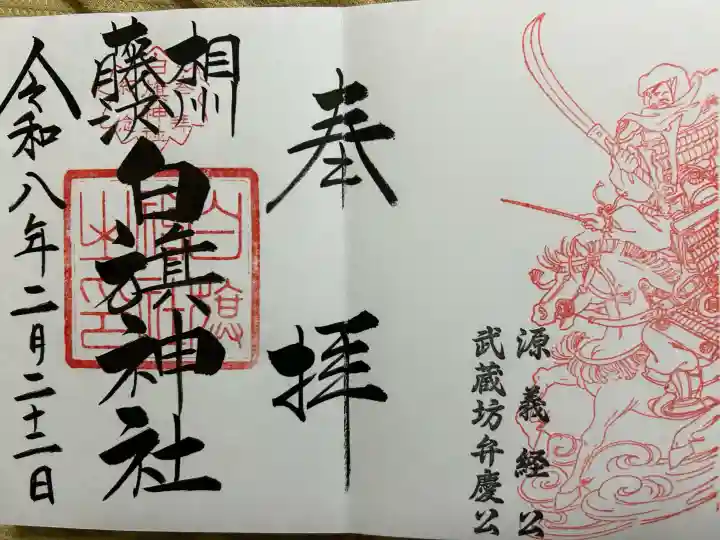 源義経公
武蔵坊弁慶公
奉拝
相州
藤沢
白旗神社
令和八年二月二十二日